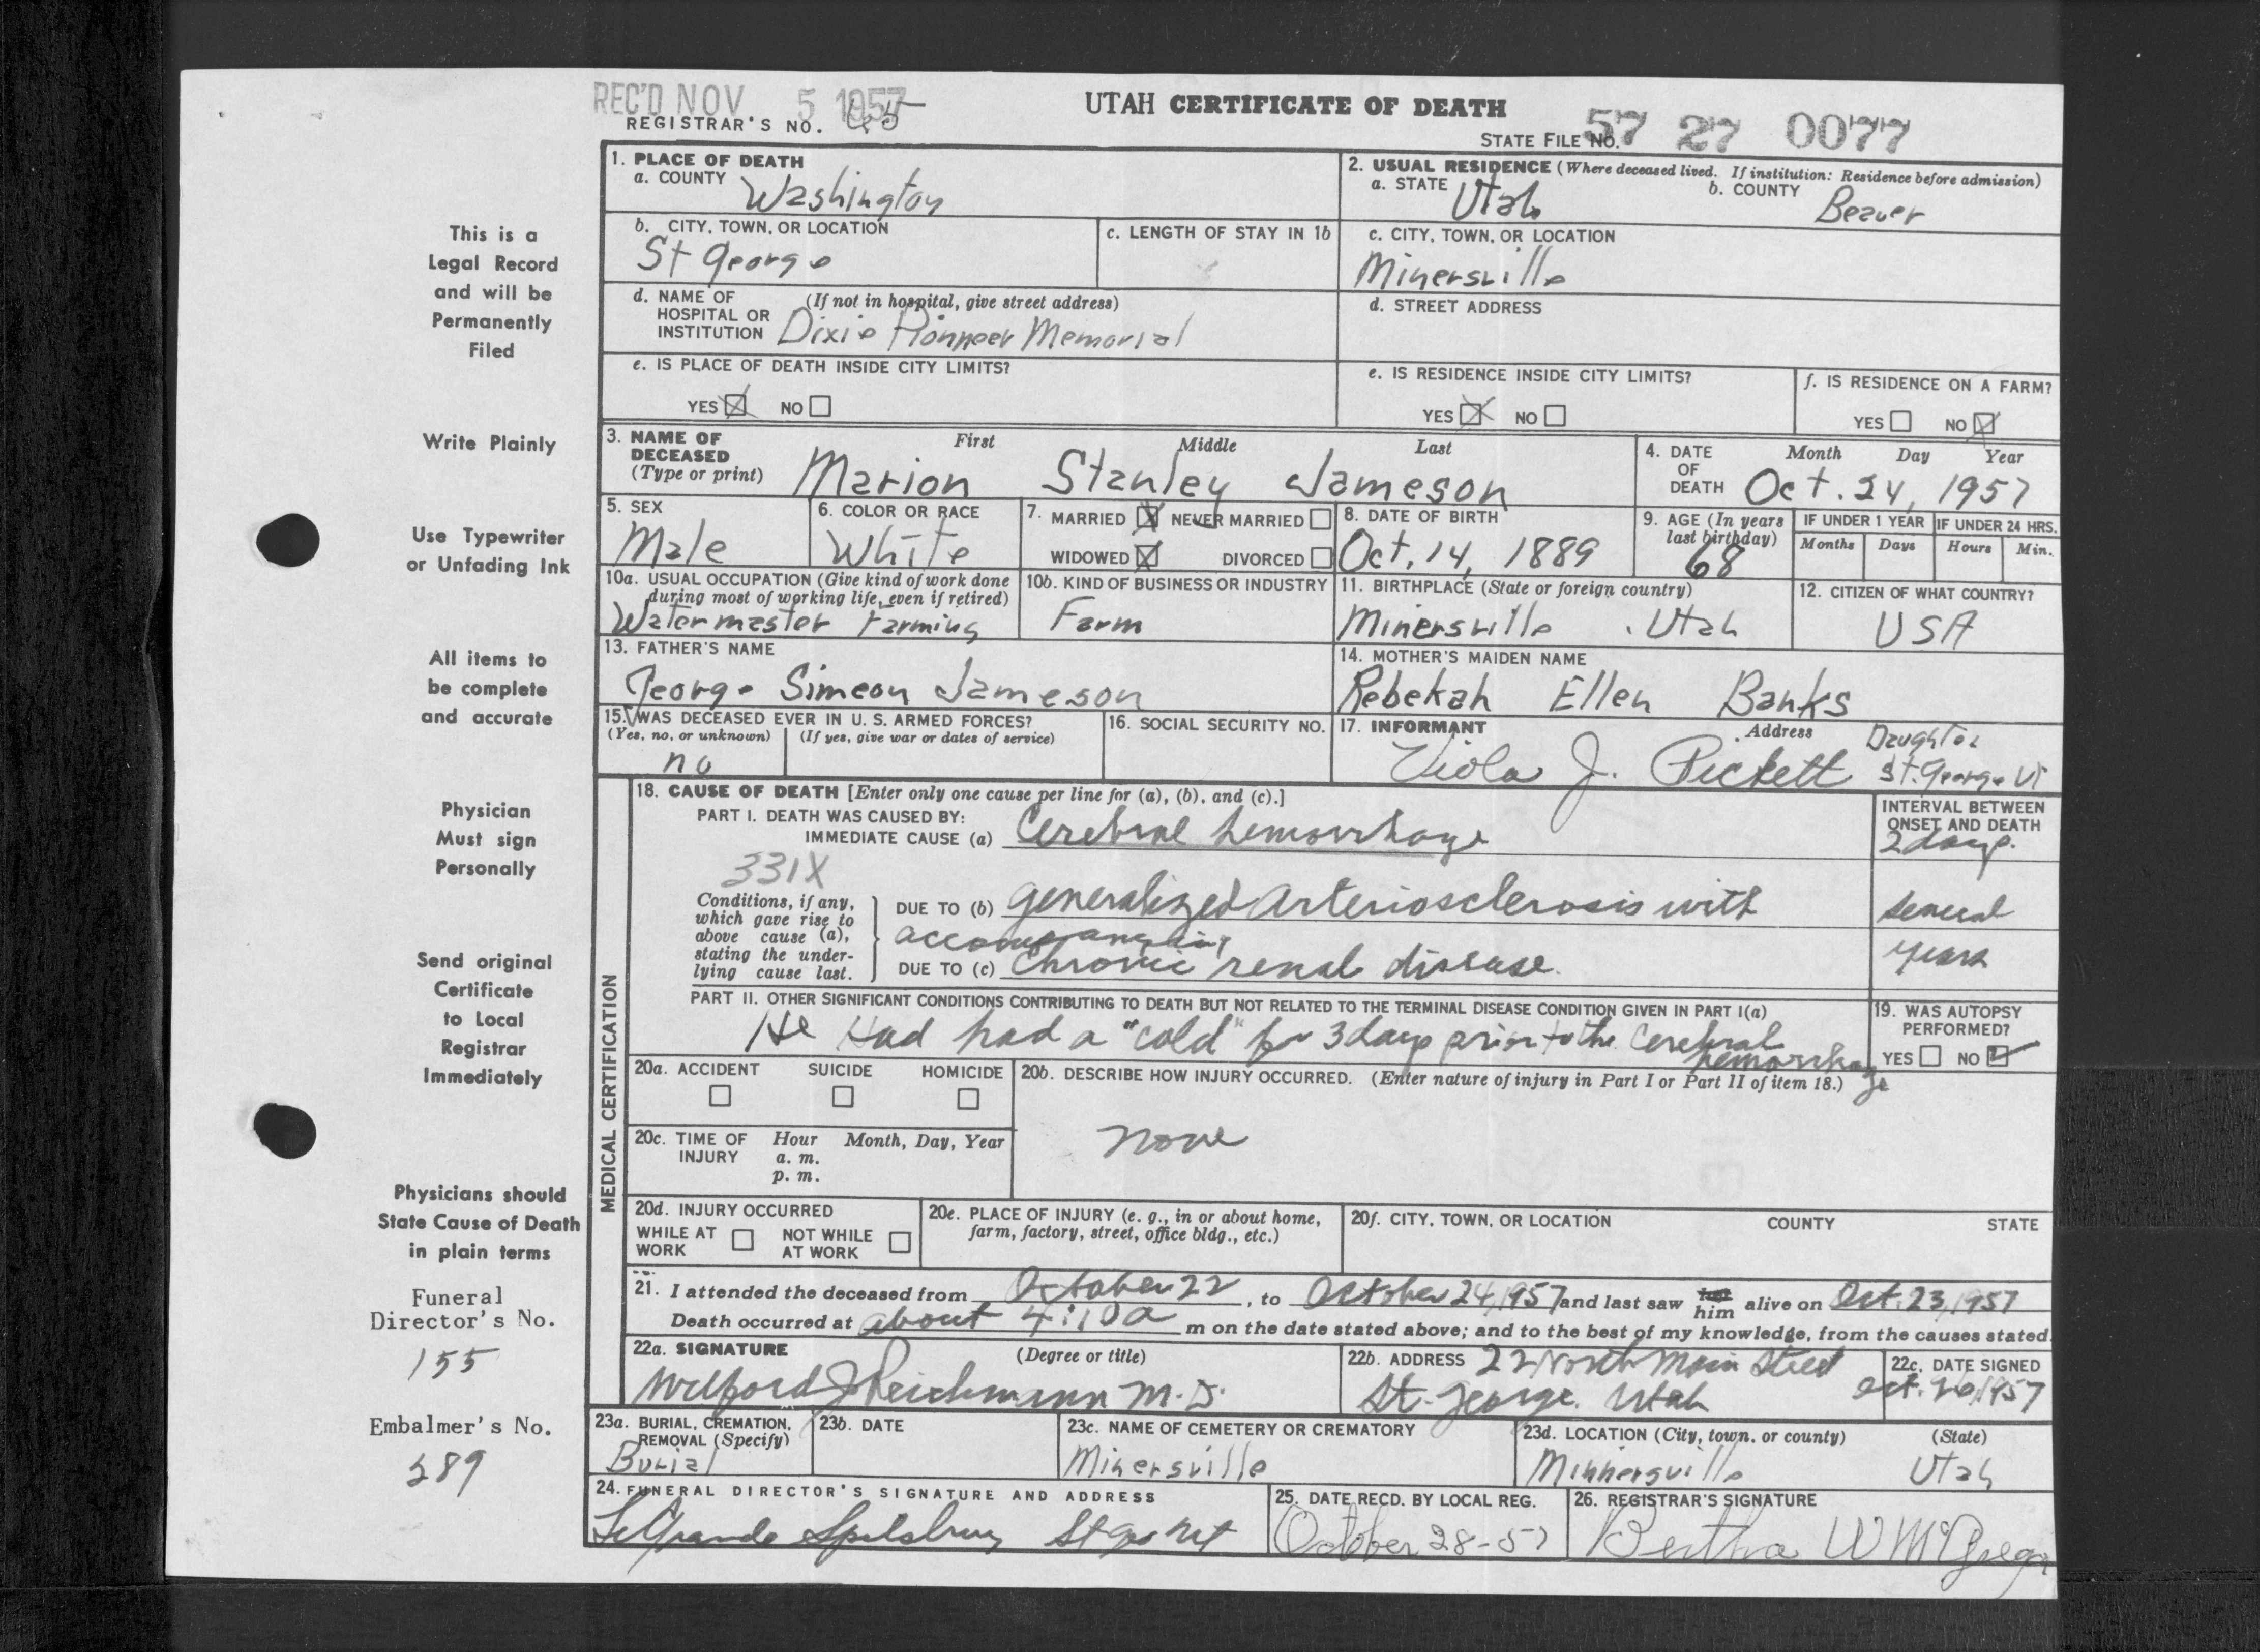 REC'D NOV 5 1957
REGISTRAR'S NO. 45
UTAH CERTIFICATE OF DEATH
STATE FILE NO. 57 27 0077
This is a
Legal Record
and will be
Permanently
Filed
Write Plainly
Use Typewriter
or Unfading Ink
All items to
be complete
and accurate
Physician
Must sign
Personally
Send original
Certificate
to Local
Registrar
Immediately
Physicians should
State Cause of Death
in plain terms
Funeral
Director's No.
155
Embalmer's No.
289
1. PLACE OF DEATH
a. COUNTY Washington
2. USUAL RESIDENCE (Where deceased lived. If institution: Residence before admission)
a. STATE Utah b. COUNTY Beaver
b. CITY, TOWN, OR LOCATION
St George
c. LENGTH OF STAY IN 1b
c. CITY, TOWN, OR LOCATION
Minersville
d. NAME OF HOSPITAL OR INSTITUTION (If not in hospital, give street address)
Dixie Pionneer Memorial
d. STREET ADDRESS
e. IS PLACE OF DEATH INSIDE CITY LIMITS?
YES X NO
e. IS RESIDENCE INSIDE CITY LIMITS?
YES X NO
f. IS RESIDENCE ON A FARM?
YES NO X
3. NAME OF DECEASED (Type or print) First Middle Last
Marion Stanley Jameson
4. DATE OF DEATH Month Day Year
Oct. 24, 1957
5. SEX
Male
6. COLOR OR RACE
White
7. MARRIED X NEVER MARRIED
WIDOWED X DIVORCED
8. DATE OF BIRTH
Oct, 14, 1889
9. AGE (In years last birthday)
68
IF UNDER 1 YEAR
Months Days
IF UNDER 24 HRS.
Hours Min.
10a. USUAL OCCUPATION (Give kind of work done during most of working life, even if retired)
Watermaster Farming
10b. KIND OF BUSINESS OR INDUSTRY
Farm
11. BIRTHPLACE (State or foreign country)
Minersville . Utah
12. CITIZEN OF WHAT COUNTRY?
USA
13. FATHER'S NAME
George Simeon Jameson
14. MOTHER'S MAIDEN NAME
Rebekah Ellen Banks
15. WAS DECEASED EVER IN U. S. ARMED FORCES?
(Yes, no, or unknown) (If yes, give war or dates of service)
no
16. SOCIAL SECURITY NO.
17. INFORMANT Address
Viola J. Pickett Daughter
St. George Ut
MEDICAL CERTIFICATION
18. CAUSE OF DEATH [Enter only one cause per line for (a), (b), and (c).]
PART I. DEATH WAS CAUSED BY:
IMMEDIATE CAUSE (a) Cerebral hemorrhage
INTERVAL BETWEEN ONSET AND DEATH
2 days.
331X
Conditions, if any, which gave rise to above cause (a), stating the underlying cause last.
DUE TO (b) generalized arteriosclerosis with
accompanying
DUE TO (c) Chronic renal disease.
several
years
PART II. OTHER SIGNIFICANT CONDITIONS CONTRIBUTING TO DEATH BUT NOT RELATED TO THE TERMINAL DISEASE CONDITION GIVEN IN PART I(a)
He had had a "cold" for 3 days prior to the cerebral
hemorrhage
19. WAS AUTOPSY PERFORMED?
YES NO
20a. ACCIDENT SUICIDE HOMICIDE
20b. DESCRIBE HOW INJURY OCCURRED. (Enter nature of injury in Part I or Part II of item 18.)
none
20c. TIME OF INJURY Hour Month, Day, Year
a. m.
p. m.
20d. INJURY OCCURRED
WHILE AT WORK NOT WHILE AT WORK
20e. PLACE OF INJURY (e. g., in or about home, farm, factory, street, office bldg., etc.)
20f. CITY, TOWN, OR LOCATION COUNTY STATE
21. I attended the deceased from October 22, to October 24, 1957 and last saw him alive on Oct. 23, 1957
Death occurred at about 4:10 a m on the date stated above; and to the best of my knowledge, from the causes stated.
22a. SIGNATURE (Degree or title)
Wilford J Reichmann M.D.
22b. ADDRESS 22 North Main Street
St. George. Utah
22c. DATE SIGNED
Oct. 26, 1957
23a. BURIAL, CREMATION, REMOVAL (Specify)
Burial
23b. DATE
23c. NAME OF CEMETERY OR CREMATORY
Minersville
23d. LOCATION (City, town, or county) (State)
Minnersville Utah
24. FUNERAL DIRECTOR'S SIGNATURE AND ADDRESS
LeGrande Spilsbury St Geo Ut
25. DATE RECD. BY LOCAL REG.
October 28-57
26. REGISTRAR'S SIGNATURE
Bertha W McGregor